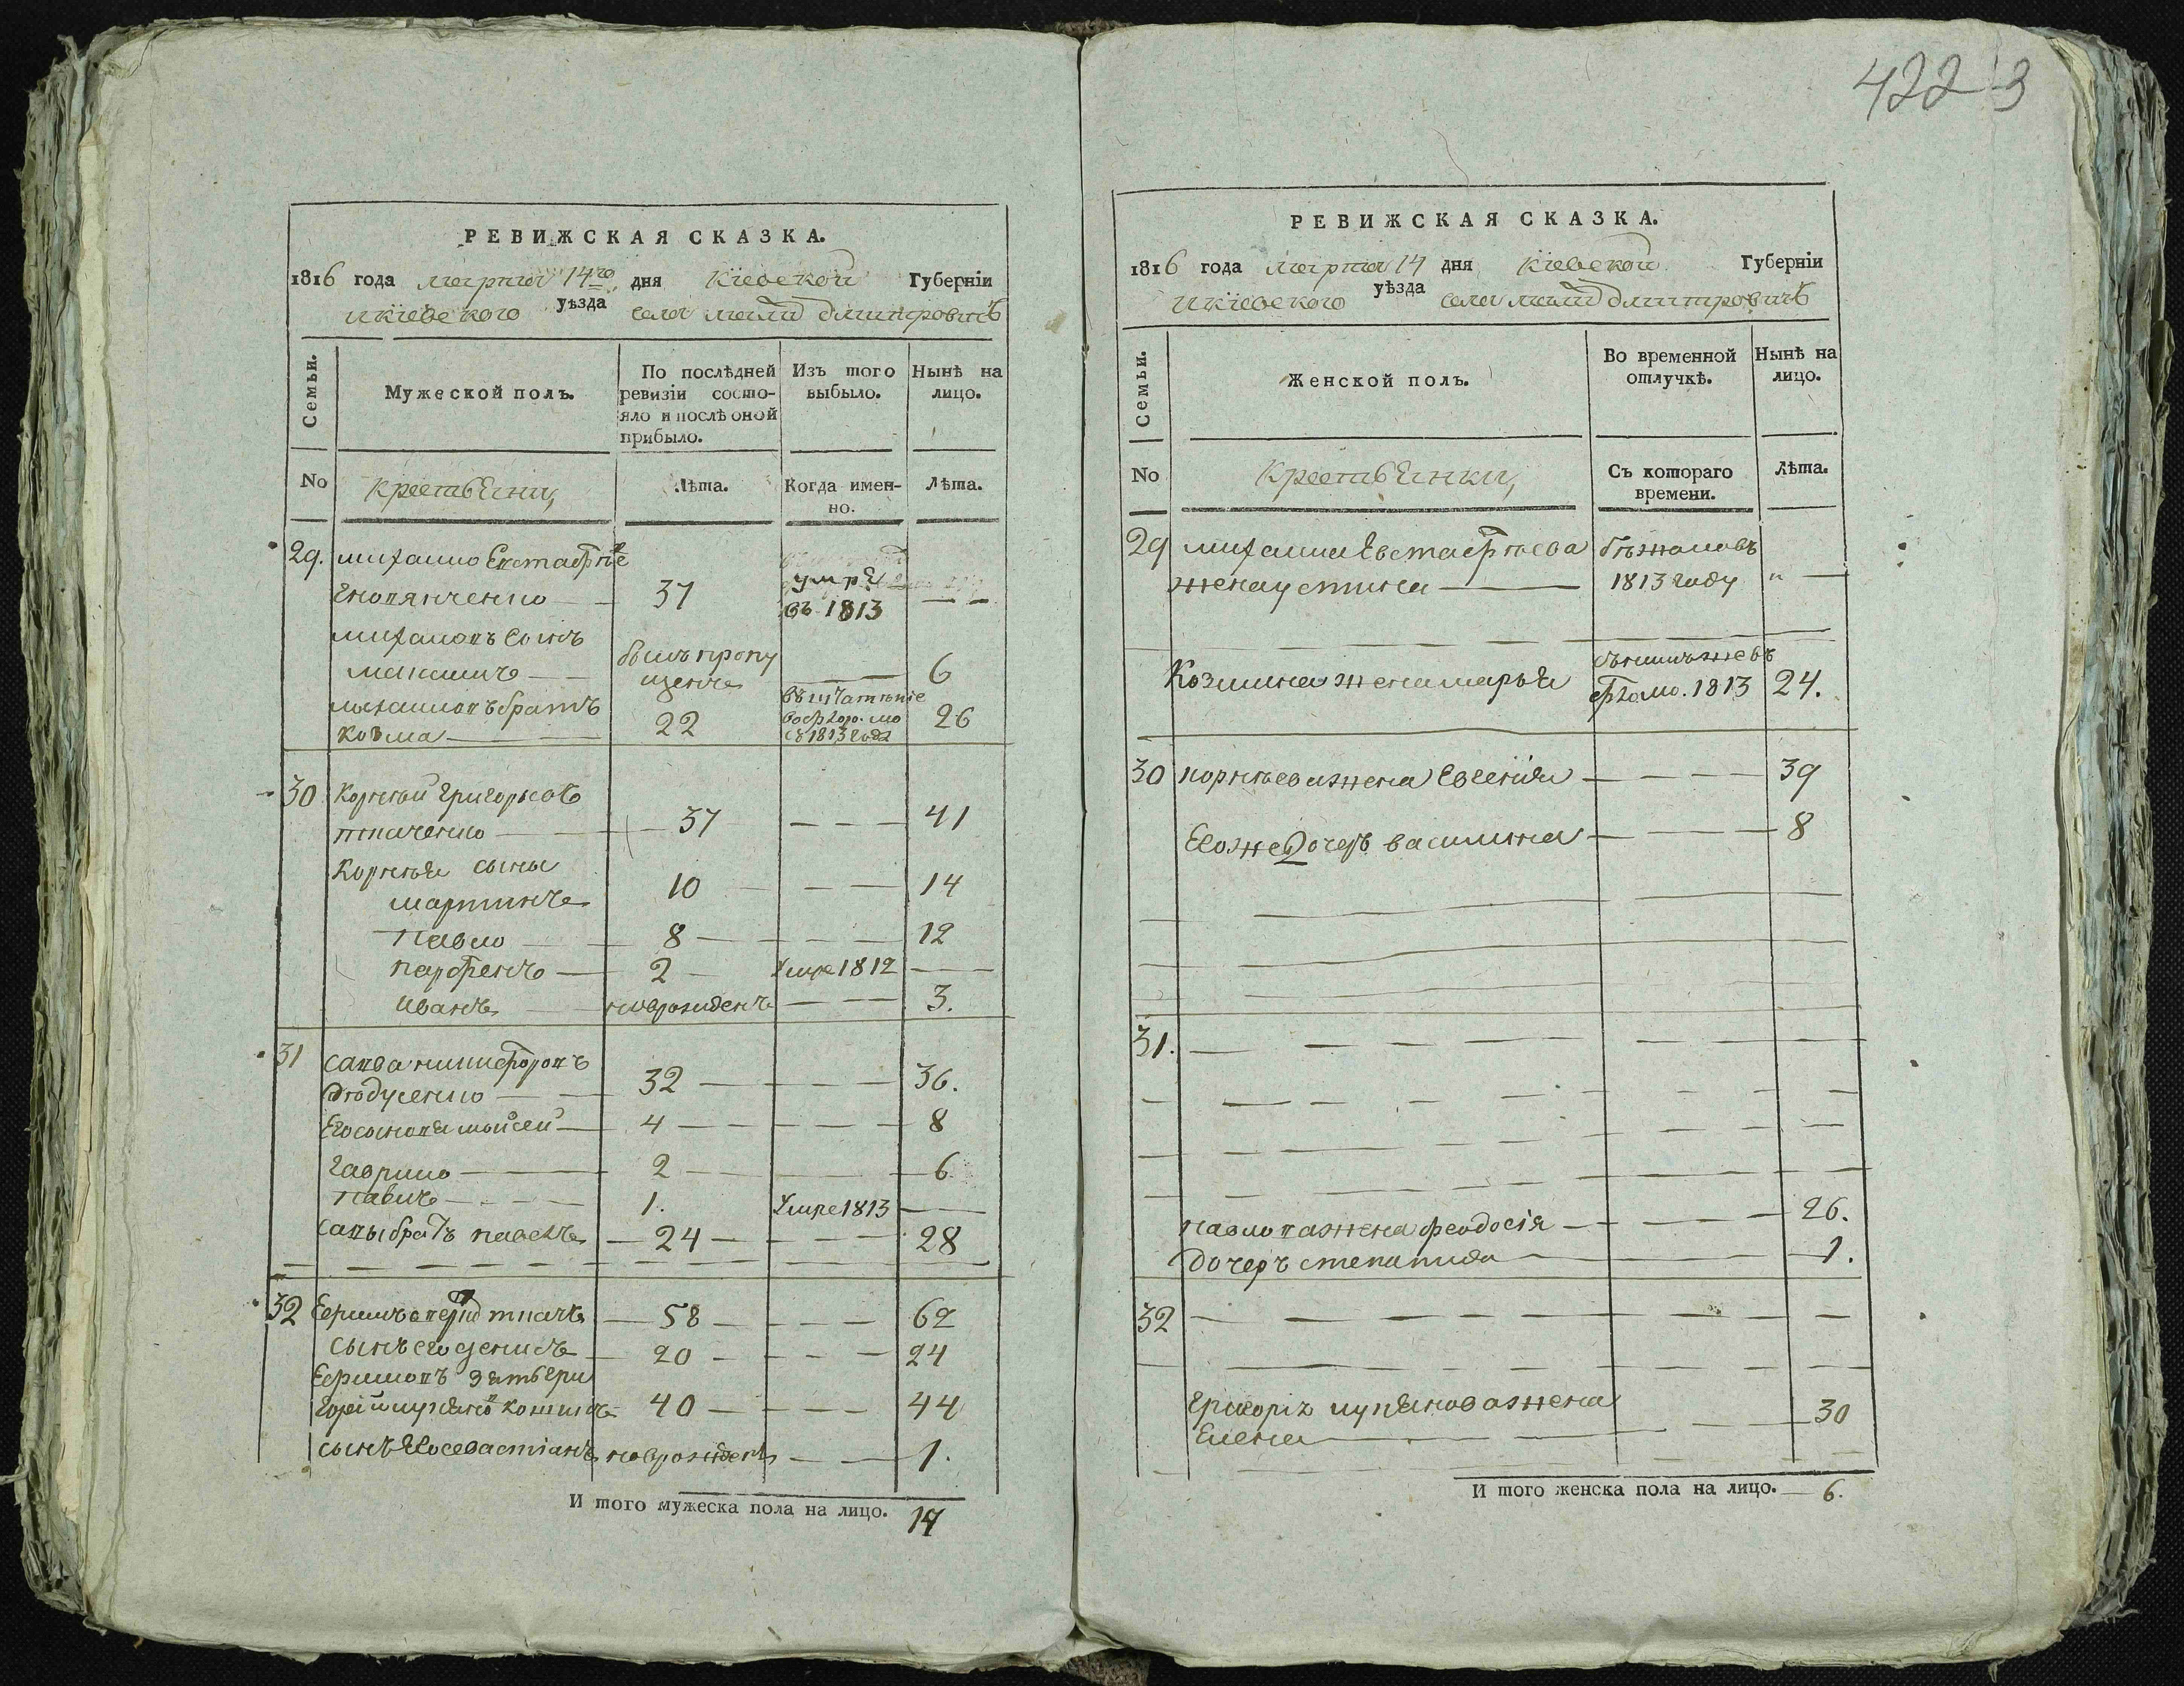 422 3
РЕВИЖСКАЯ СКАЗКА.
1816 года марта 14го дня Кіевской Губерніи
икіевского уѣзда села малы дмитровичъ
Семьи.
Мужеской полъ.
По послѣдней ревизіи состо-
яло и послѣ оной
прибыло.
Изъ того
выбыло.
Нынѣ на
лицо.
No
крестьяни,
Лѣта.
Когда имен-
но.
Лѣта.
29. михаило Евстафіе
37
умре
въ 1813
михаиловъ сынъ
максимъ
былъ пропу
щенъ
6
михаиловъ братъ
козма
22
съ 1813 года
26
30 Корнѣй григорьевъ
ткаченко
37
41
Корнѣя сыны
мартинъ
10
14
Павло
8
12
парфенъ
2
Умре 1812
иванъ
новорожденъ
3.
31 савва никифоровъ
32
36.
Его сыновя мойсей
4
8
гаврило
2
6
павилъ
1.
Умре 1813
савы братъ павелъ
24
28
32 Ефимъ ткачъ
58
62
сынъ его денисъ
20
24
Ефимовъ зять гри
40
44
сынъ его севастіанъ новорожденъ
1.
И того мужеска пола на лицо. 14
РЕВИЖСКАЯ СКАЗКА.
1816 года марта 14 дня Кіевской Губерніи
икіевского уѣзда села малы дмитровичъ
Семьи.
Женской полъ.
Во временной
отлучкѣ.
Нынѣ на
лицо.
No
Крестьянки,
Съ котораго
времени.
Лѣта.
29 михаила Евстафіева
жена устина
бѣжала въ
1813 году
Козмина жена марья
1813
24.
30 корнѣева жена Евгенія
39
Его же дочерь василина
8
31.
павлова жена феодосія
26.
дочеръ степанида
1.
32
Елена
30
И того женска пола на лицо. 6.